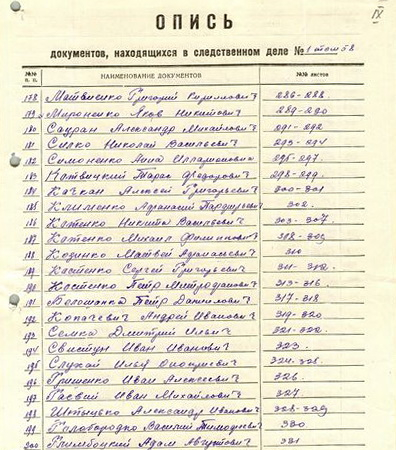 IX
ОПИСЬ
документов, находящихся в следственном деле № 1 том 58
№№ п. п. НАИМЕНОВАНИЕ ДОКУМЕНТОВ №№ листов
178 Матвиенко Григорий Кириллович 286-288
179 Мироненко Яков Никитович 289-290
180 Сауран Александр Михайлович 291-292
181 Силко Николай Васильевич 293-294
182 Симоненко Анна 295-297
183 Катвицкий Тарас Федорович 298-299
184 Качкан Алексей Григорьевич 300-301
185 Клименко Афанасий 302
186 Катенко Никита Васильевич 303-307
187 Катенко Михаил Филиппович 308-309
188 Кодинко Матвей Адамасевич 310
189 Костенко Сергей Григорьевич 311-312
190 Костенко Петр Митрофанович 313-316
191 Мелошенко Петр Данилович 317-318
192 Копачевич Андрей Иванович 319-320
193 Семка Дмитрий Ильич 321-322
194 Свистун Иван Иванович 323
195 Слухай Илья 324-325
196 Гришенко Иван Алексеевич 326
197 Гаевий Иван Михайлович 327
198 Александр Иванович 328-329
199 Головородко Василий Тимофеевич 330
200 Глимбоцкий Адам Августович 331